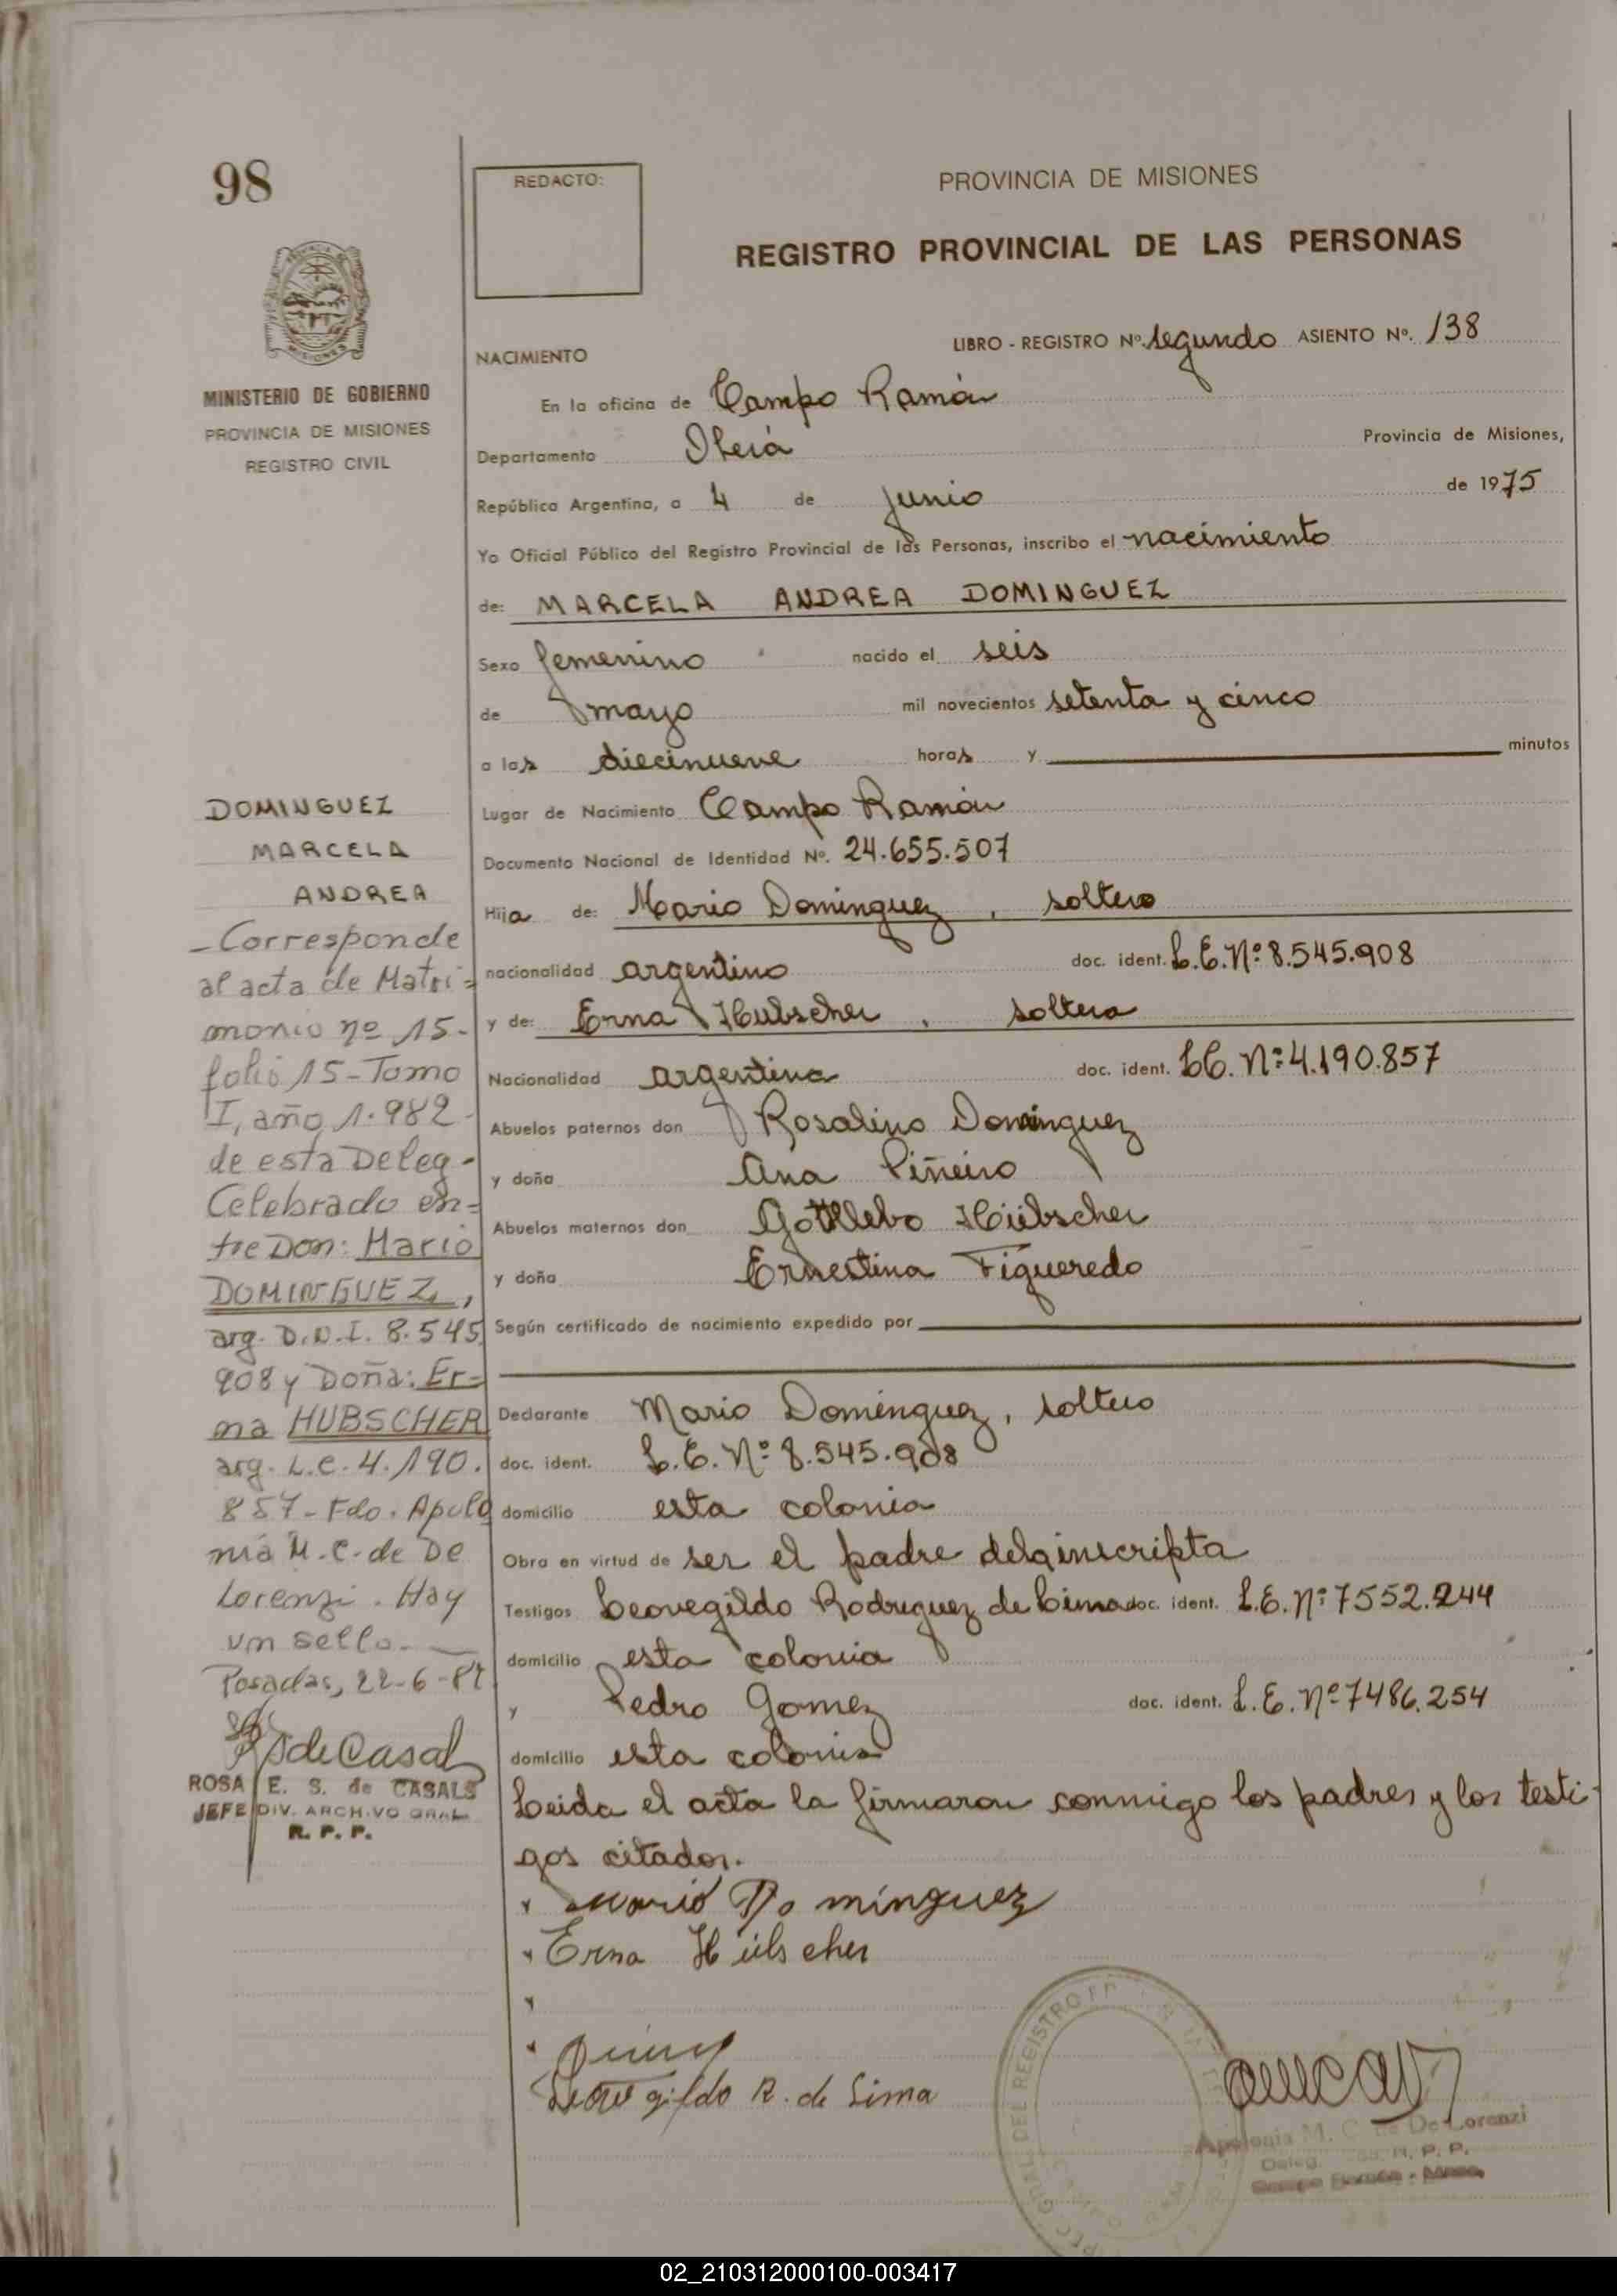 98
REDACTO:
PROVINCIA DE MISIONES
REGISTRO PROVINCIAL DE LAS PERSONAS
MISIONES
MINISTERIO DE GOBIERNO
PROVINCIA DE MISIONES
REGISTRO CIVIL
LIBRO - REGISTRO Nº. segundo ASIENTO Nº. 138
NACIMIENTO
En la oficina de Campo Ramón
Departamento Oberá Provincia de Misiones,
República Argentina, a 4 de junio de 1975
Yo Oficial Público del Registro Provincial de las Personas, inscribo el nacimiento
de: MARCELA ANDREA DOMINGUEZ
Sexo femenino nacido el seis
de mayo mil novecientos setenta y cinco
a las diecinueve horas y minutos
Lugar de Nacimiento Campo Ramón
Documento Nacional de Identidad Nº. 24.655.507
Hija de: Mario Dominguez, soltero
nacionalidad argentino doc. ident. L.E. Nº: 8.545.908
y de: Erna Hubscher, soltera
Nacionalidad argentina doc. ident. LC. Nº: 4.190.857
Abuelos paternos don Rosalino Dominguez
y doña Ana Piñeiro
Abuelos maternos don Gottlebo Hübscher
y doña Ernestina Figueredo
Según certificado de nacimiento expedido por
Declarante Mario Dominguez, soltero
doc. ident. L.E. Nº: 8.545.908
domicilio esta colonia
Obra en virtud de ser el padre dela inscripta
Testigos Leovegildo Rodriguez de Lima doc. ident. L.E. Nº: 7552.244
domicilio esta colonia
y Pedro Gomez doc. ident. L.E. Nº 7486.254
domicilio esta colonia
Leida el acta la firmaron conmigo los padres y los testi-
gos citados.
Mario Dominguez
Erna Hübscher
Leovegildo R. de Lima
DOMINGUEZ
MARCELA
ANDREA
- Corresponde
al acta de Matri=
monio nº 15-
folio 15 - Tomo
I, año 1.982
de esta Deleg-
Celebrado en=
tre Don: Mario
DOMINGUEZ,
arg. D.N.I. 8.545.
908 y Doña: Er=
na HUBSCHER
arg. L.C. 4.190.
857 - Fdo. Apolo
nia M. C. de De
Lorenzi. Hay
un sello.-
Posadas, 22-6-87
R S de Casals
ROSA E. S. de CASALS
JEFE DIV. ARCHIVO GRAL
R. P. P.
DEL REGISTRO
Apolonia M. C. de De Lorenzi
Deleg. R. P. P.
Campo Ramón - Mnes.
02_210312000100-003417